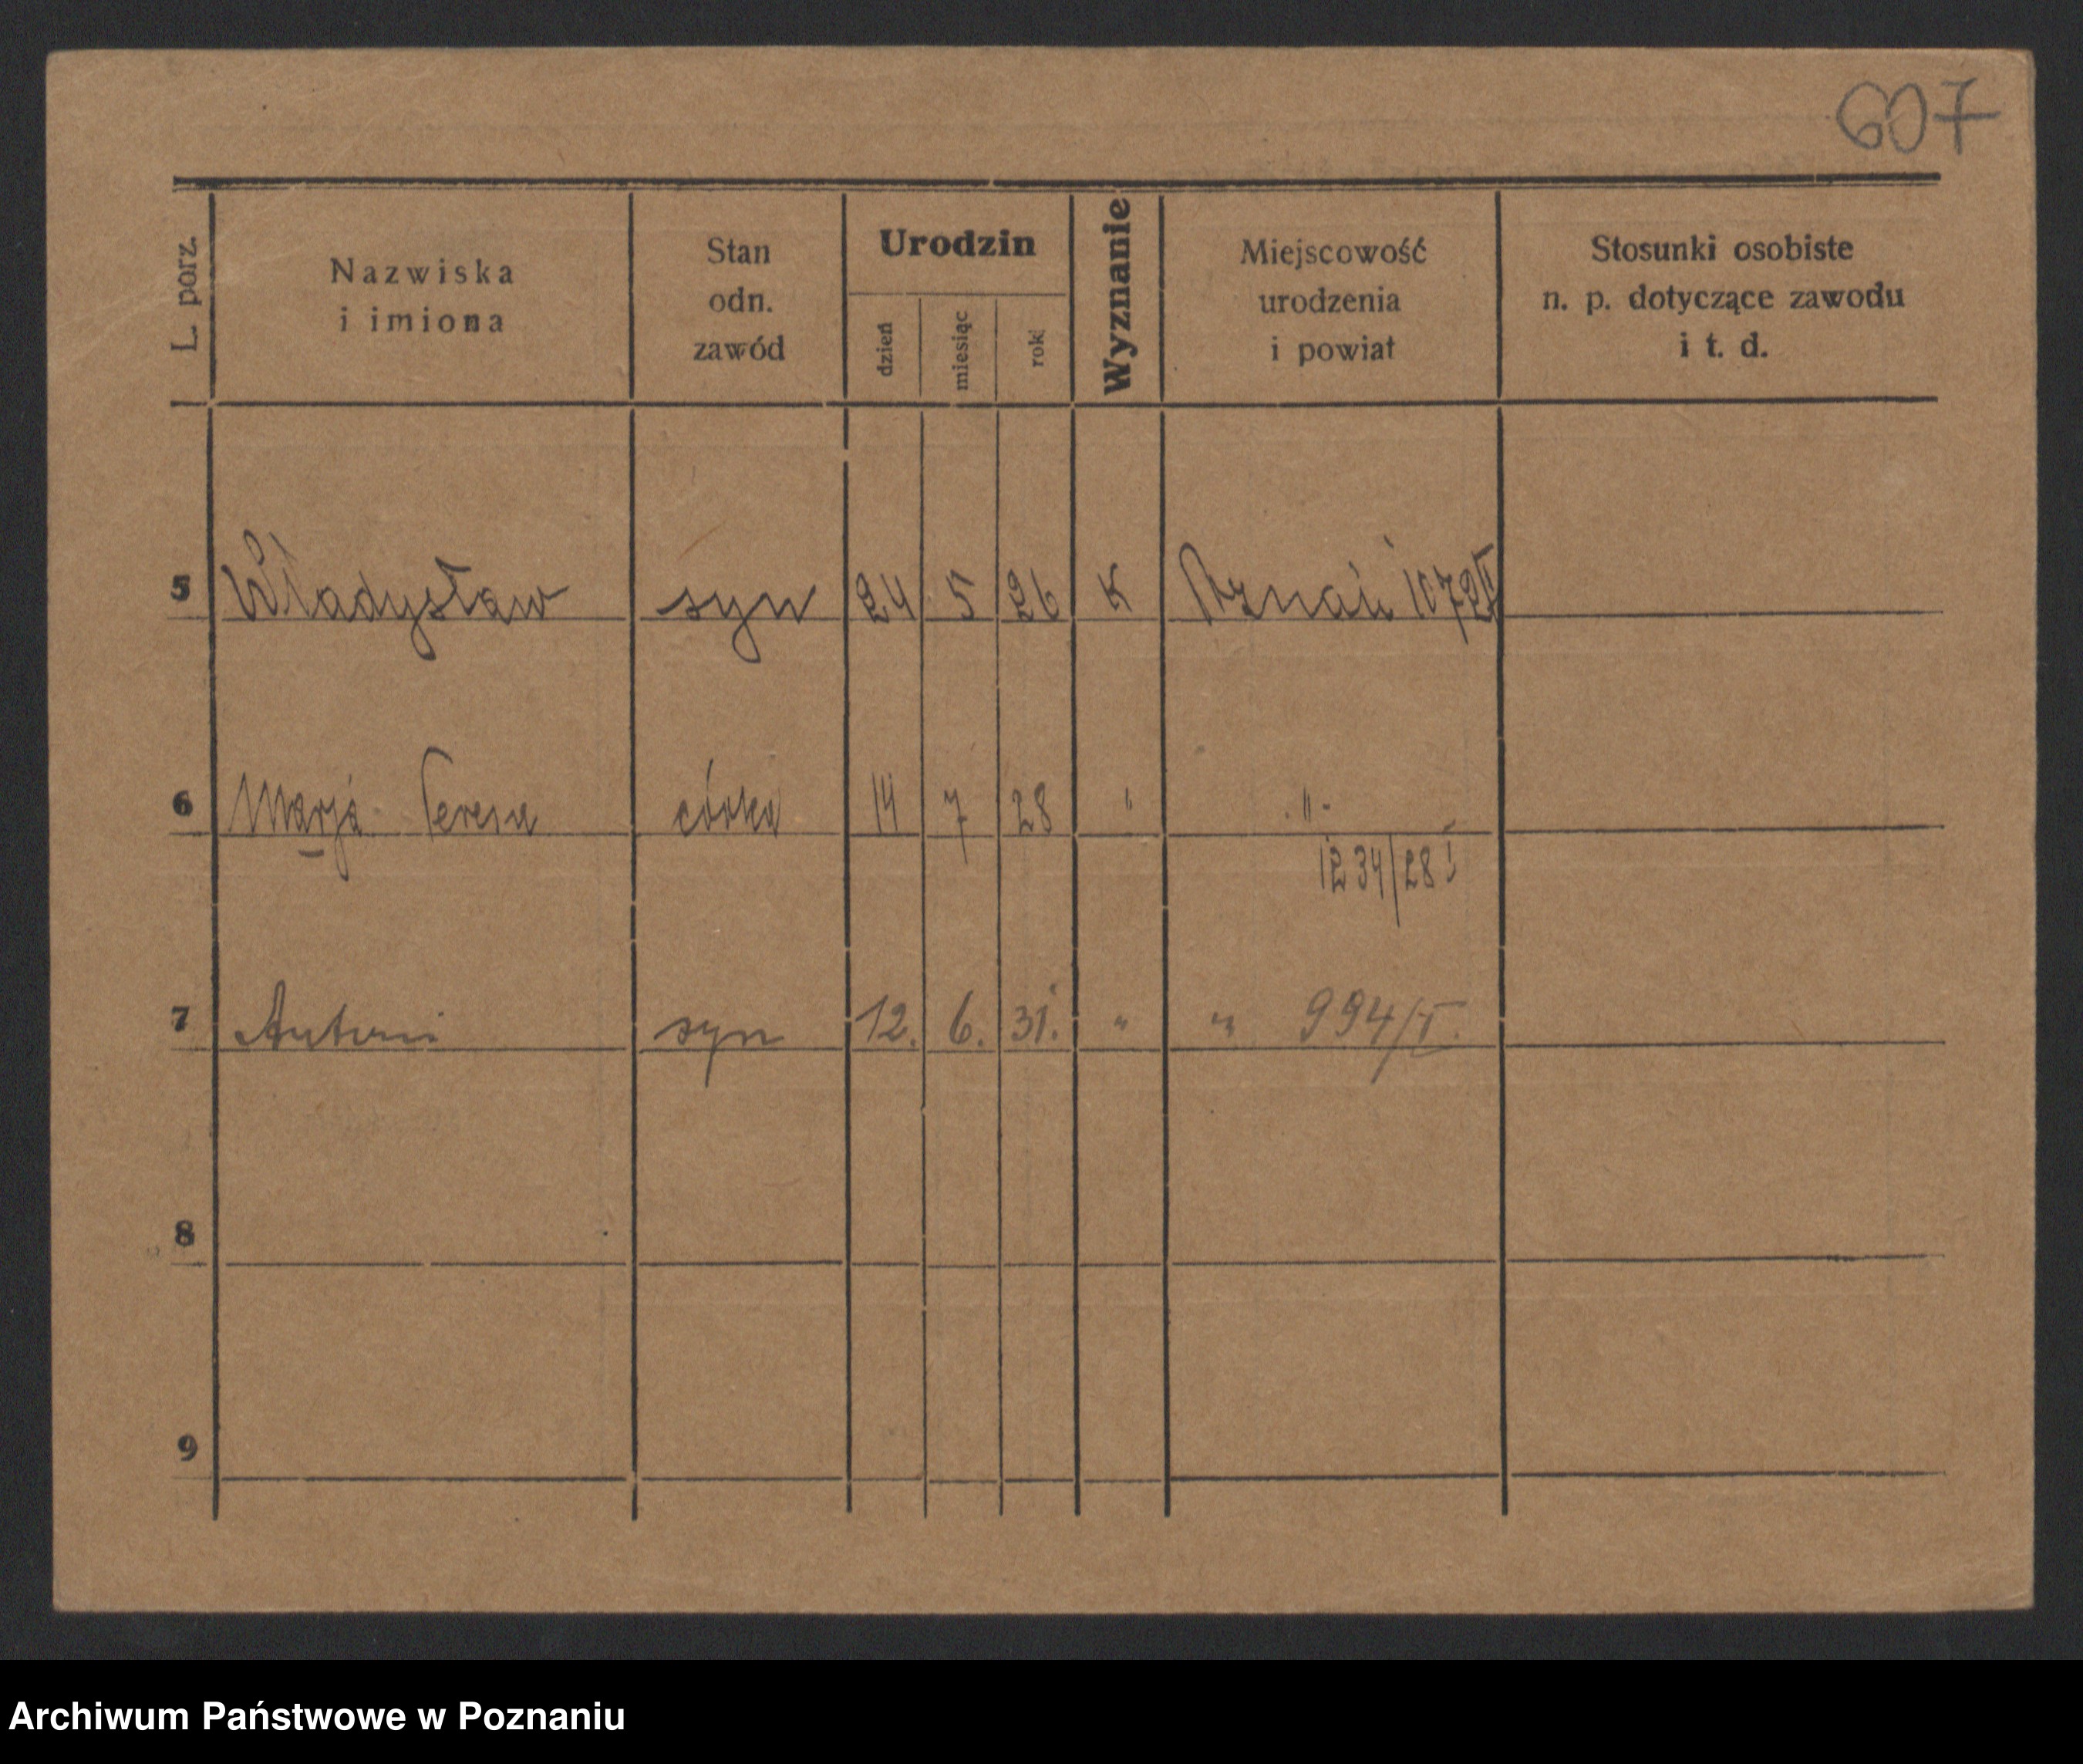 607
L. porz.
Nazwiska
i imiona
Stan
odn.
zawód
Urodzin
dzień
miesiąc
rok
Wyznanie
Miejscowość
urodzenia
i powiat
Stosunki osobiste
n. p. dotyczące zawodu
i t. d.
5 Władysław syn 24 5 26 K Poznań 1072 II
6 Marja Teresa córka 14 7 28 " "
1234/28 I
7 Antoni syn 12. 6. 31. " " 994/I.
8
9
Archiwum Państwowe w Poznaniu